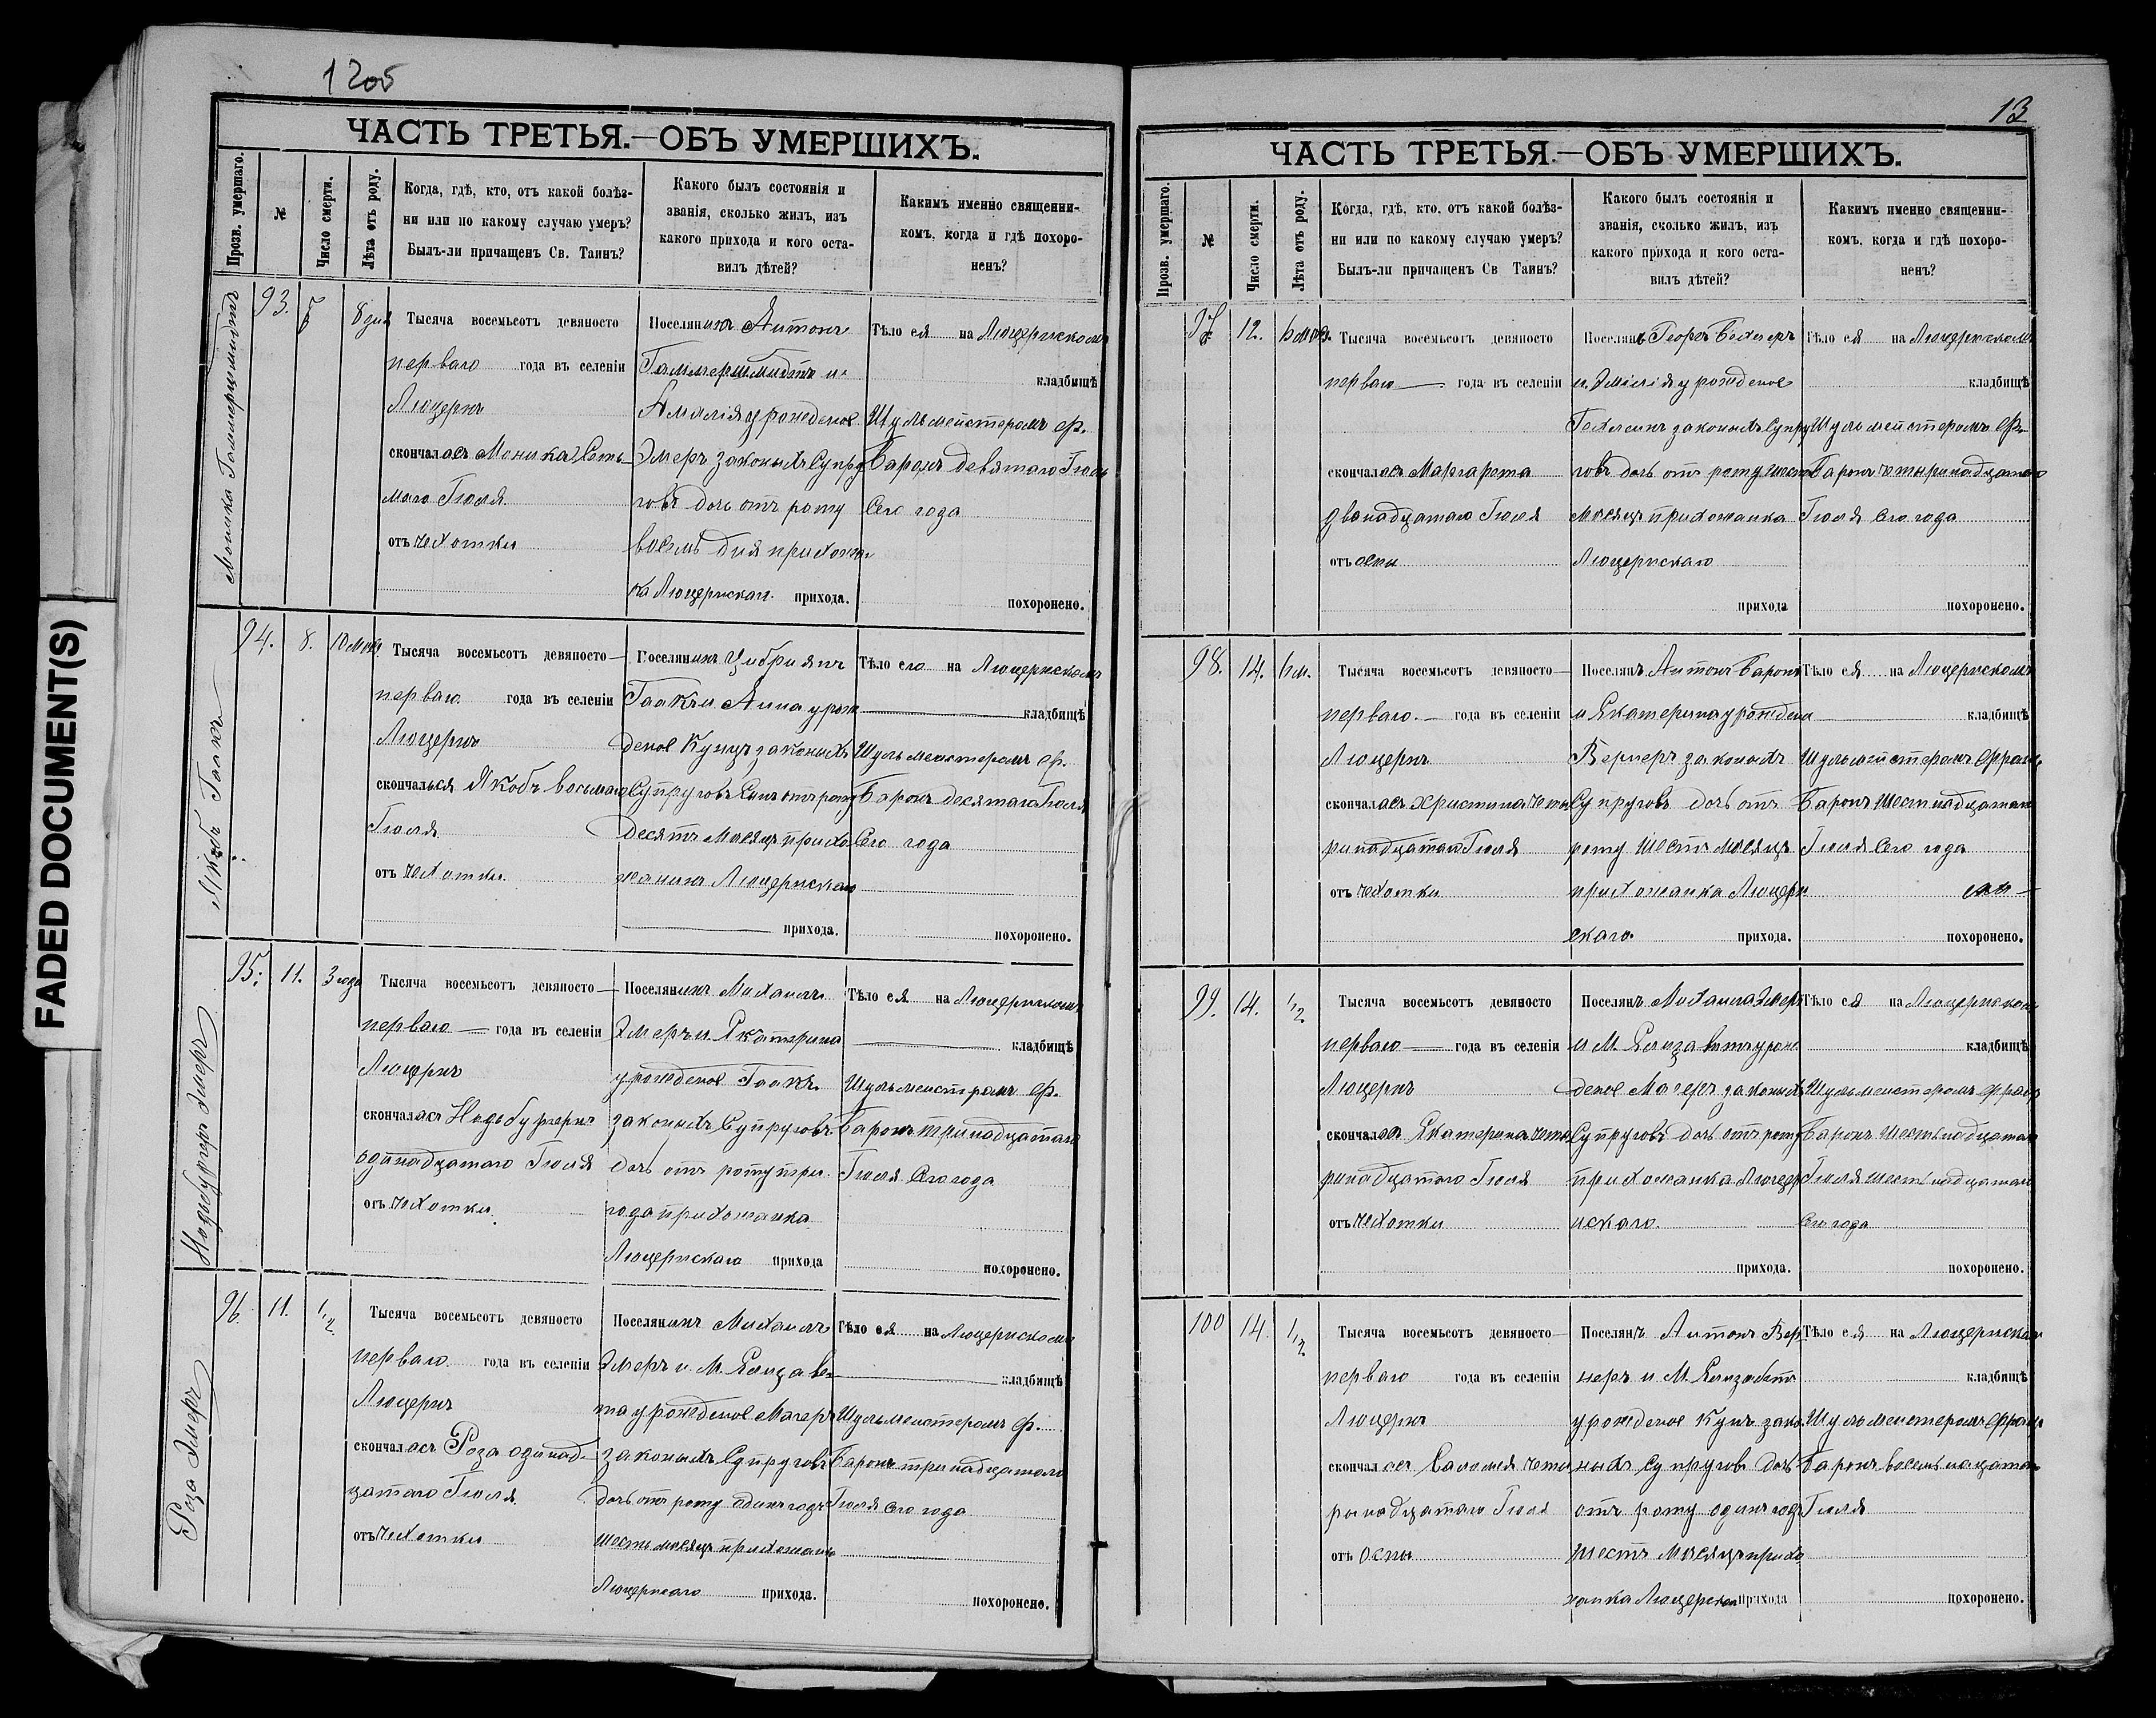 1205
ЧАСТЬ ТРЕТЬЯ.—ОБЪ УМЕРШИХЪ.
Прозв. умершаго.
№
Число смерти.
Лѣта отъ роду.
Когда, гдѣ, кто, отъ какой болѣз-
ни или по какому случаю умеръ?
Былъ-ли причащенъ Св. Таинъ?
Какого былъ состоянія и
званія, сколько жилъ, изъ
какого прихода и кого оста-
вилъ дѣтей?
Какимъ именно священни-
комъ, когда и гдѣ похоро-
ненъ?
Моника Гаммершмидтъ
93.
8 дня
Тысяча восемьсотъ девяносто
перваго года въ селеніи
Люцернъ
скончалась Моника Седь-
маго Іюля
отъ чехотки
Поселянинъ Антонъ
Гаммершмидтъ и
Амалія урожденое
Эмеръ законыхъ Супру
говъ дочь отъ роту
восемь дня прихожан
ка Люцернскаго прихода.
Тѣло ея на Люцернскомъ
кладбищѣ
Шульмейстеромъ Ф.
Баронъ девятаго Іюля
Сего года
похоронено.
Якобъ Гаакъ
94.
8.
10 мѣс.
Тысяча восемьсотъ девяносто
перваго года въ селеніи
Люцернъ
скончалься Якобъ восьмаго
Іюля
отъ чехотки.
Поселянинъ Цибриянъ
Гаакъ и Анна урож
деное Кунцъ законыхъ
Супруговъ Сынъ отъ роту
десять мѣсяцъ прихо
жанинъ Люцернскаго
прихода.
Тѣло его на Люцернскомъ
кладбищѣ
Шульмейстеромъ Ф.
Баронъ десятаго Іюля
Сего года
похоронено.
Нодьбургеръ Эмеръ
95.
11.
3 года
Тысяча восемьсотъ девяносто
перваго года въ селеніи
Люцернъ
скончалась Нодьбургеръ
одинадцатаго Іюля
отъ чехотки.
Поселянинъ Михаилъ
Эмеръ и Екатерина
урожденое Гаакъ
законыхъ Супруговъ
дочь отъ роту три
года прихожанка
Люцернскаго прихода
Тѣло ея на Люцернскомъ
кладбищѣ
Шульмейстромъ Ф.
Баронъ тринадцатаго
Іюля Сего года
похоронено.
Роза Эмеръ
96.
11.
1½
Тысяча восемьсотъ девяносто
перваго года въ селеніи
Люцернъ
скончалась Роза одинад-
цатаго Іюля
отъ чехотки
Поселянинъ Михаилъ
Эмеръ и М. Елизаве
та урожденое Магеръ
законыхъ Супруговъ
дочь отъ роту одинъ годъ
шесть мѣсяцъ прихожанк
Люцернкаго прихода.
Тѣло ея на Люцернскомъ
кладбищѣ
Шульмейстеромъ Ф.
Баронъ тринадцатаго
Іюля Сего года
похоронено.
13
ЧАСТЬ ТРЕТЬЯ.—ОБЪ УМЕРШИХЪ.
Прозв. умершаго.
№
Число смерти.
Лѣта отъ роду.
Когда, гдѣ, кто, отъ какой болѣз-
ни или по какому случаю умеръ?
Былъ-ли причащенъ Св Таинъ?
Какого былъ состоянія и
званія, сколько жилъ, изъ
какого прихода и кого оста-
вилъ дѣтей?
Какимъ именно священни-
комъ, когда и гдѣ похоро-
ненъ?
97
12.
6 мѣся.
Тысяча восемьсотъ девяносто
перваго года въ селеніи
скончалась Маргарета
двонадцатаго Іюля
отъ оспы
Поселянъ Георгъ
и Эмілія урожденое
законыхъ Супру
говъ дочь отъ роту шесть
мѣсяцъ прихожанка
Люцернскаго
прихода
Тѣло ея на Люцернскомъ
кладбищѣ
Шульмейстеромъ Ф.
Баронъ четыринадцатаго
Іюля Сего года
похоронено.
98.
14.
6 м.
Тысяча восемьсотъ девяносто
перваго года въ селеніи
Люцернъ
скончалась Христина четы
ринадцатаго Іюля
отъ чехотки
Поселянъ Антонъ Баронъ
и Екатерина урожденое
Вернеръ законыхъ
Супруговъ дочь отъ
роту шесть мѣсяцъ
прихожанка Люцерн
скаго прихода.
Тѣло ея на Люцернскомъ
кладбищѣ
Шульмейстеромъ Франц
Баронъ шестнадцатаго
Іюля Сего года
похоронено.
99.
14.
½
Тысяча восемьсотъ девяносто
перваго года въ селеніи
Люцернъ
скончалась Екатерина четы
ринадцатаго Іюля
отъ чехотки
Поселянъ Михаила Эмеръ
и М. Елизавета урож
деное Магеръ законыхъ
Супруговъ дочь отъ роту
прихожанка Люцер
нскаго.
прихода.
Тѣло ея на Люцернском
кладбищѣ
Шульмейстеромъ Франц
Баронъ шестьнадцатаго
Іюля шестьнадцатаго
Сего года
похоронено.
100
14.
1½
Тысяча восемьсотъ девяносто
перваго года въ селеніи
Люцернъ
скончалась Саломея четы
ринадцатаго Іюля
отъ Оспы
Поселянъ Антонъ Вер
неръ и М. Елизабетъ
урожденое Кунъ зако
ныхъ Супруговъ дочь
отъ роту одинъ годъ
шесть мѣсяцъ прихо
жанка Люцернскаго прихода
Тѣло ея на Люцернском
кладбищѣ
Шульмейстеромъ Франц
Баронъ восемьнацатаго
Іюля
похоронено.
FADED DOCUMENT(S)